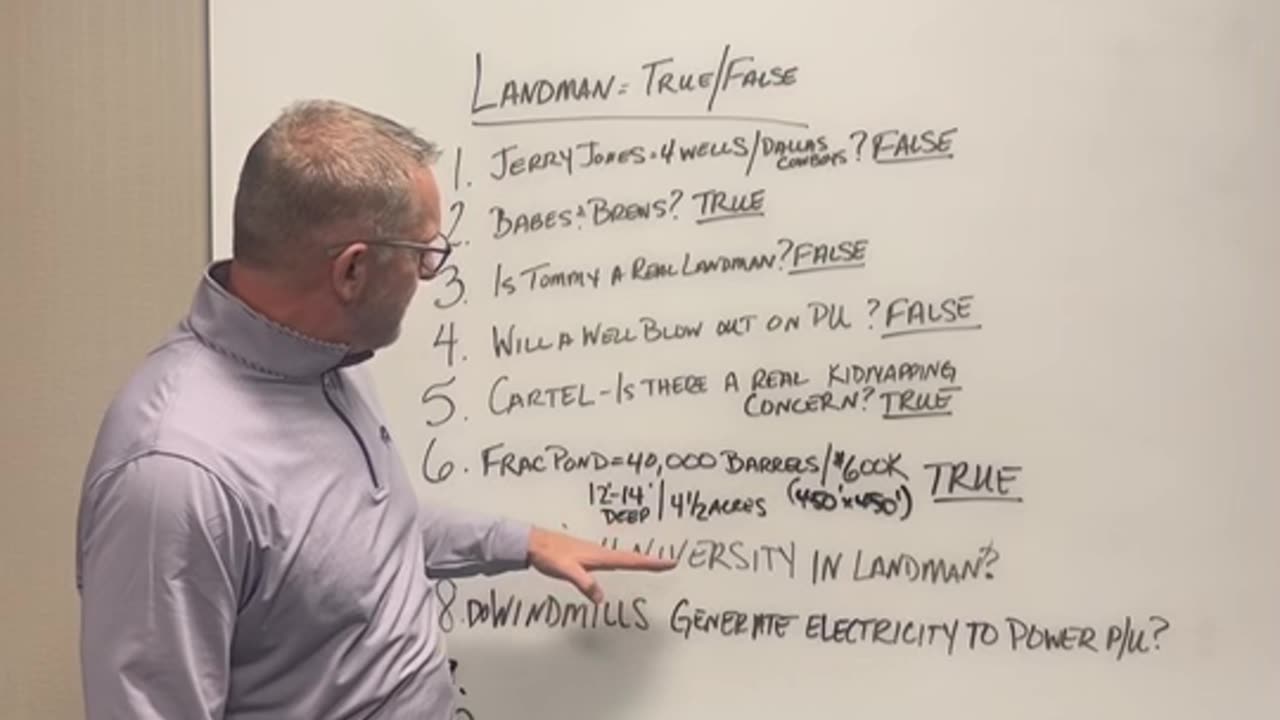 LANDMAN = TRUE/FALSE
1. JERRY JONES = 4 WELLS/DALLAS COWBOYS? FALSE
2. BABES & BREWS? TRUE
3. IS TOMMY A REAL LANDMAN? FALSE
4. WILL A WELL BLOW OUT ON PU? FALSE
5. CARTEL - IS THERE A REAL KIDNAPPING
CONCERN? TRUE
6. FRAC POND = 40,000 BARRELS/$600K TRUE
12'-14' DEEP / 4 1/2 ACRES (450' x 450')
UNIVERSITY IN LANDMAN?
8. DO WINDMILLS GENERATE ELECTRICITY TO POWER P/U?